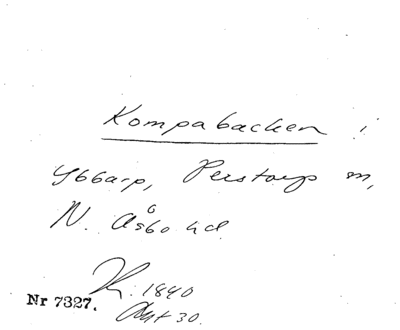 Kompabacken i
Ybbarp, Perstorps sn,
N. Åsbo hd
K. 1840
Akt 30.
Nr 7327.